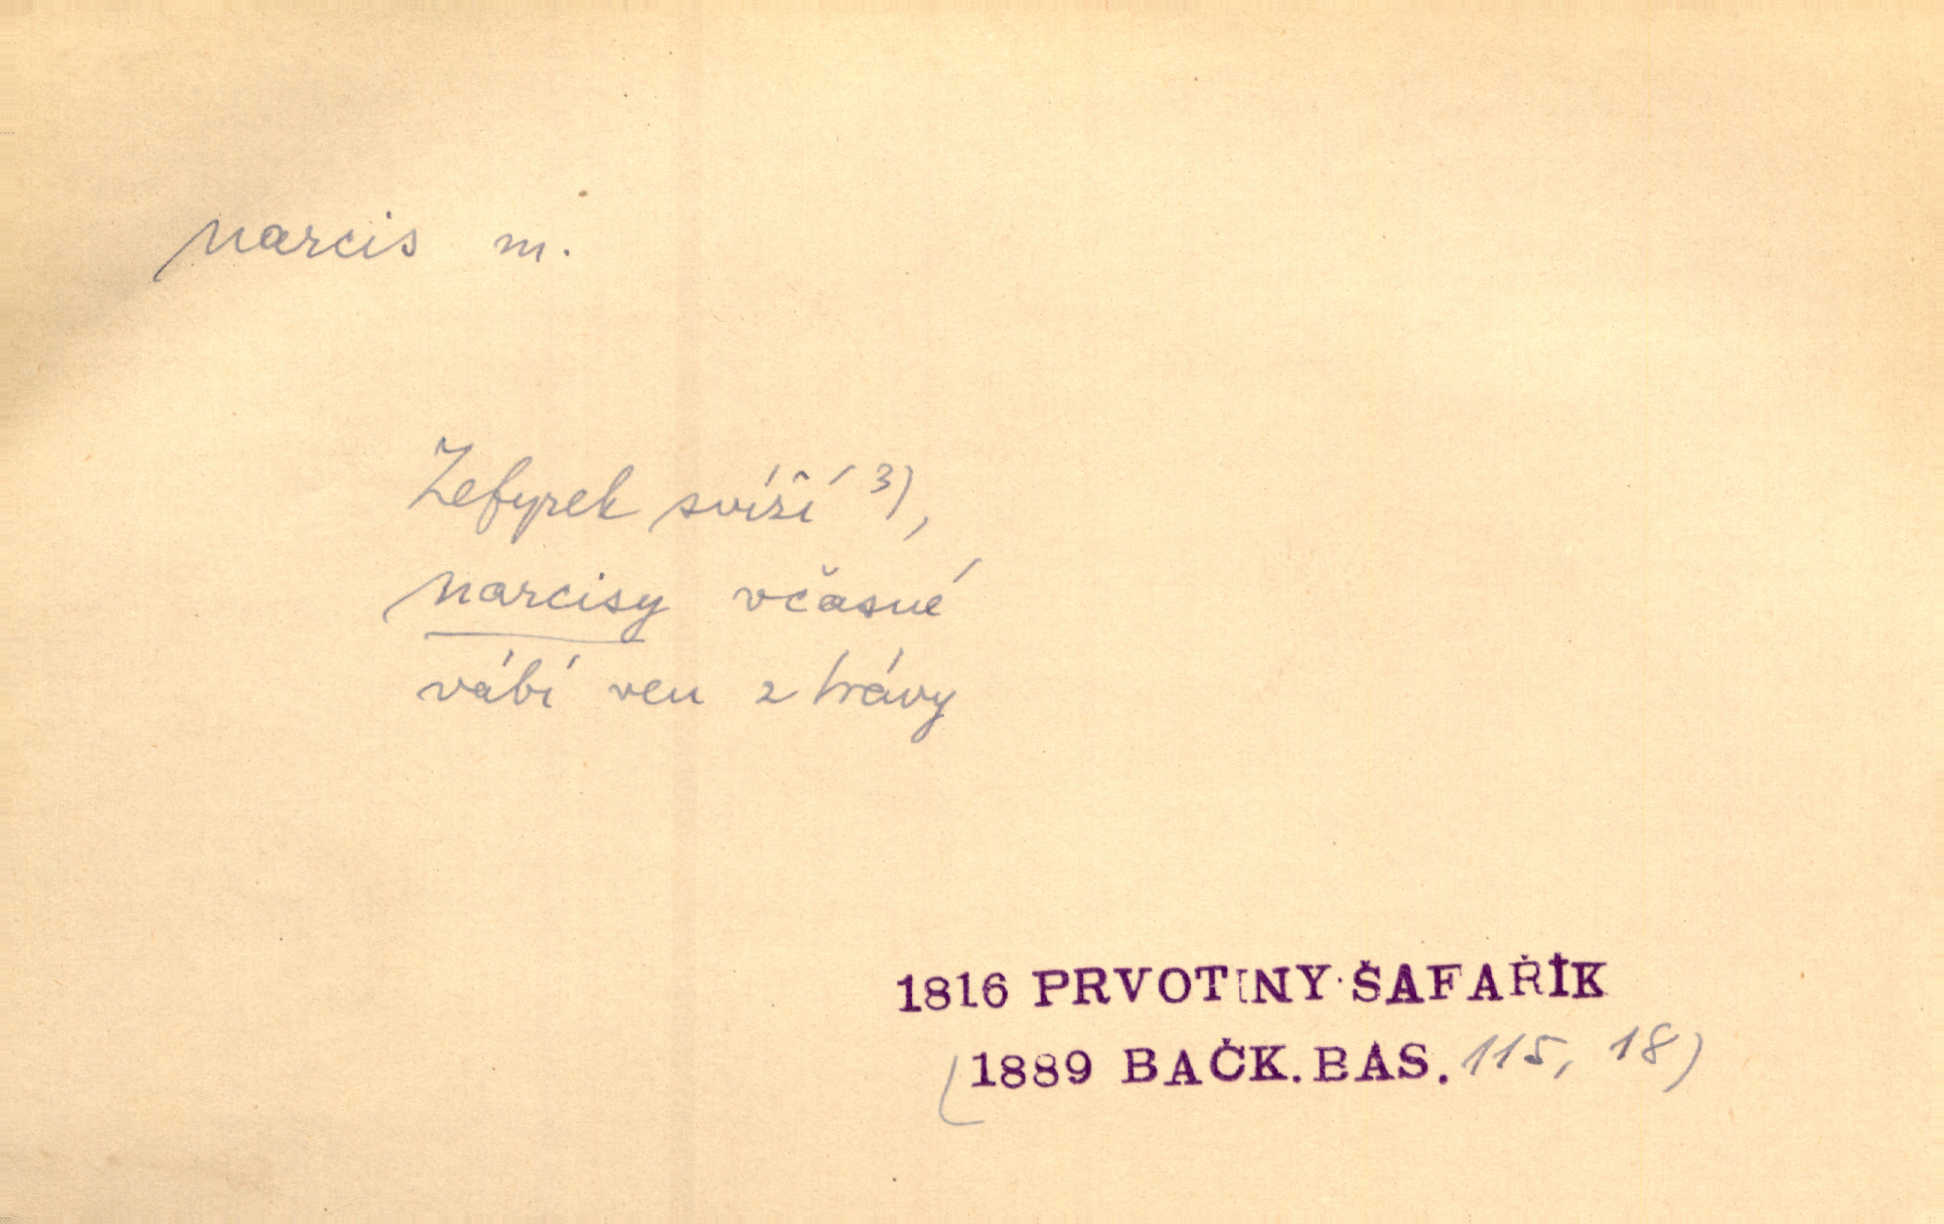 narcis m.
Zefyrek svíží 3),
narcisy včasné
vábí ven z trávy
1816 PRVOTINY ŠAFAŘÍK
(1889 BAČK. BAS. 115, 18)